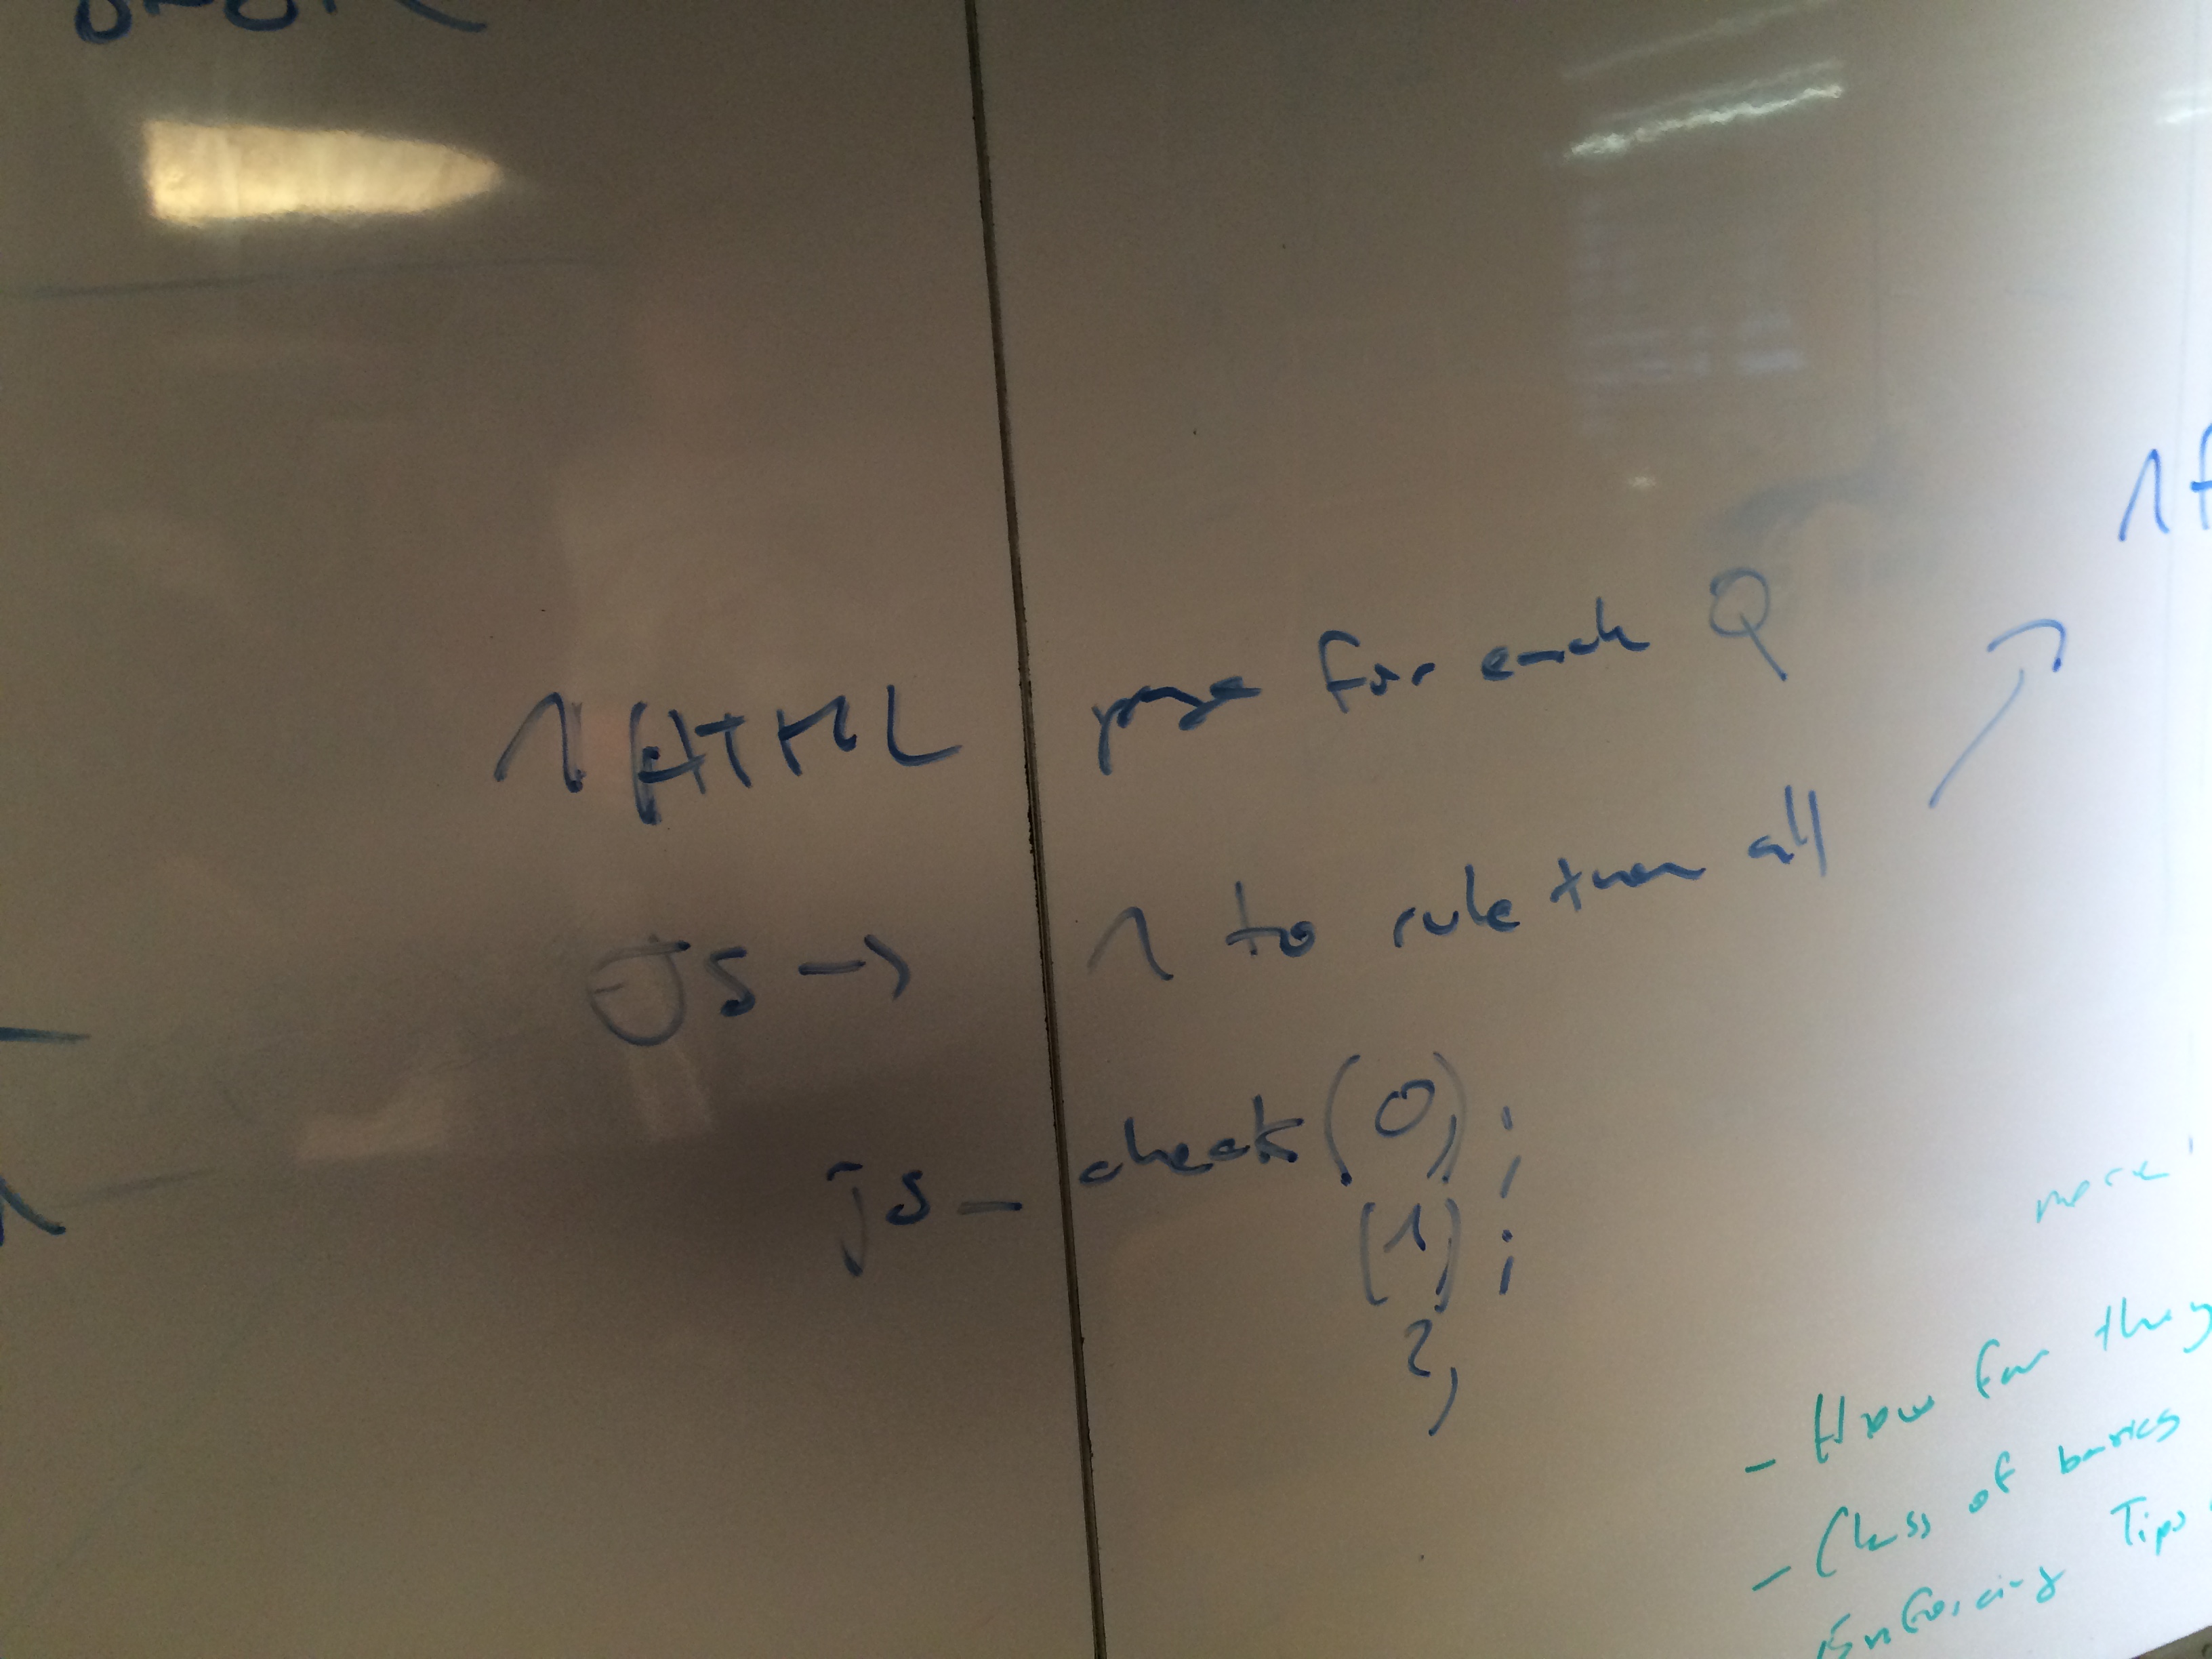 1 HTML page for each Q
JS → 1 to rule them all
js_check(0);
(1);
2,
- How far they
- Class of basics
Enforcing Tips